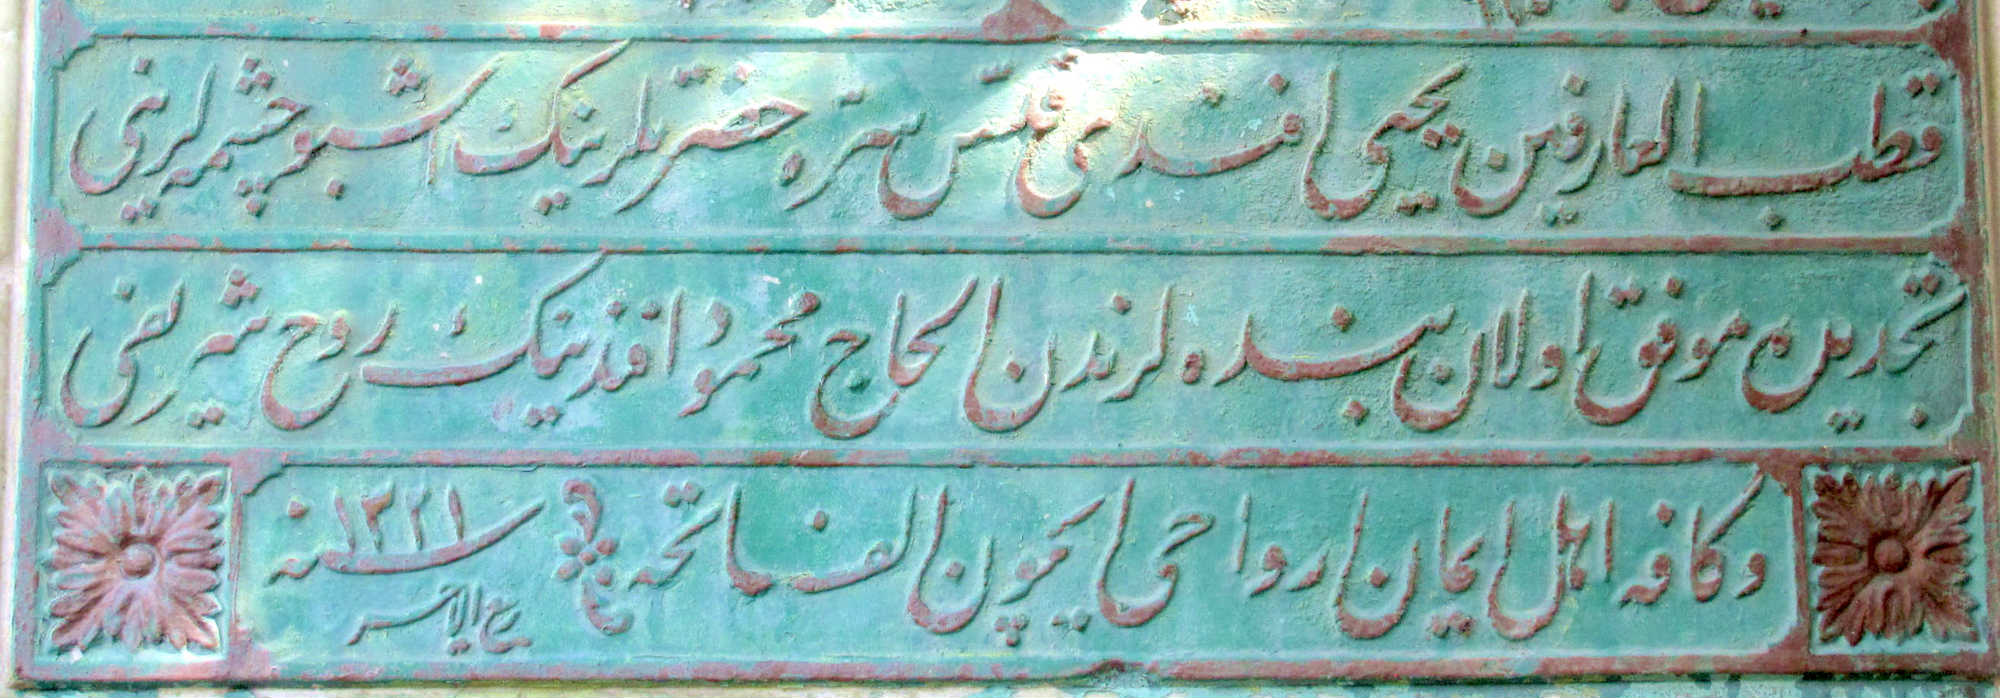 قطب العارفین یحیی افندی قدس سره حضرتلرینك اشبو چشمه لرینی
تجدیده موفق اولان بنده لرندن الحاج محمود افندینك روح شریفی
و كافه اهل ایمان ارواحی ایچون الفاتحه
سنه ١٣٢١
ربیع الاخر